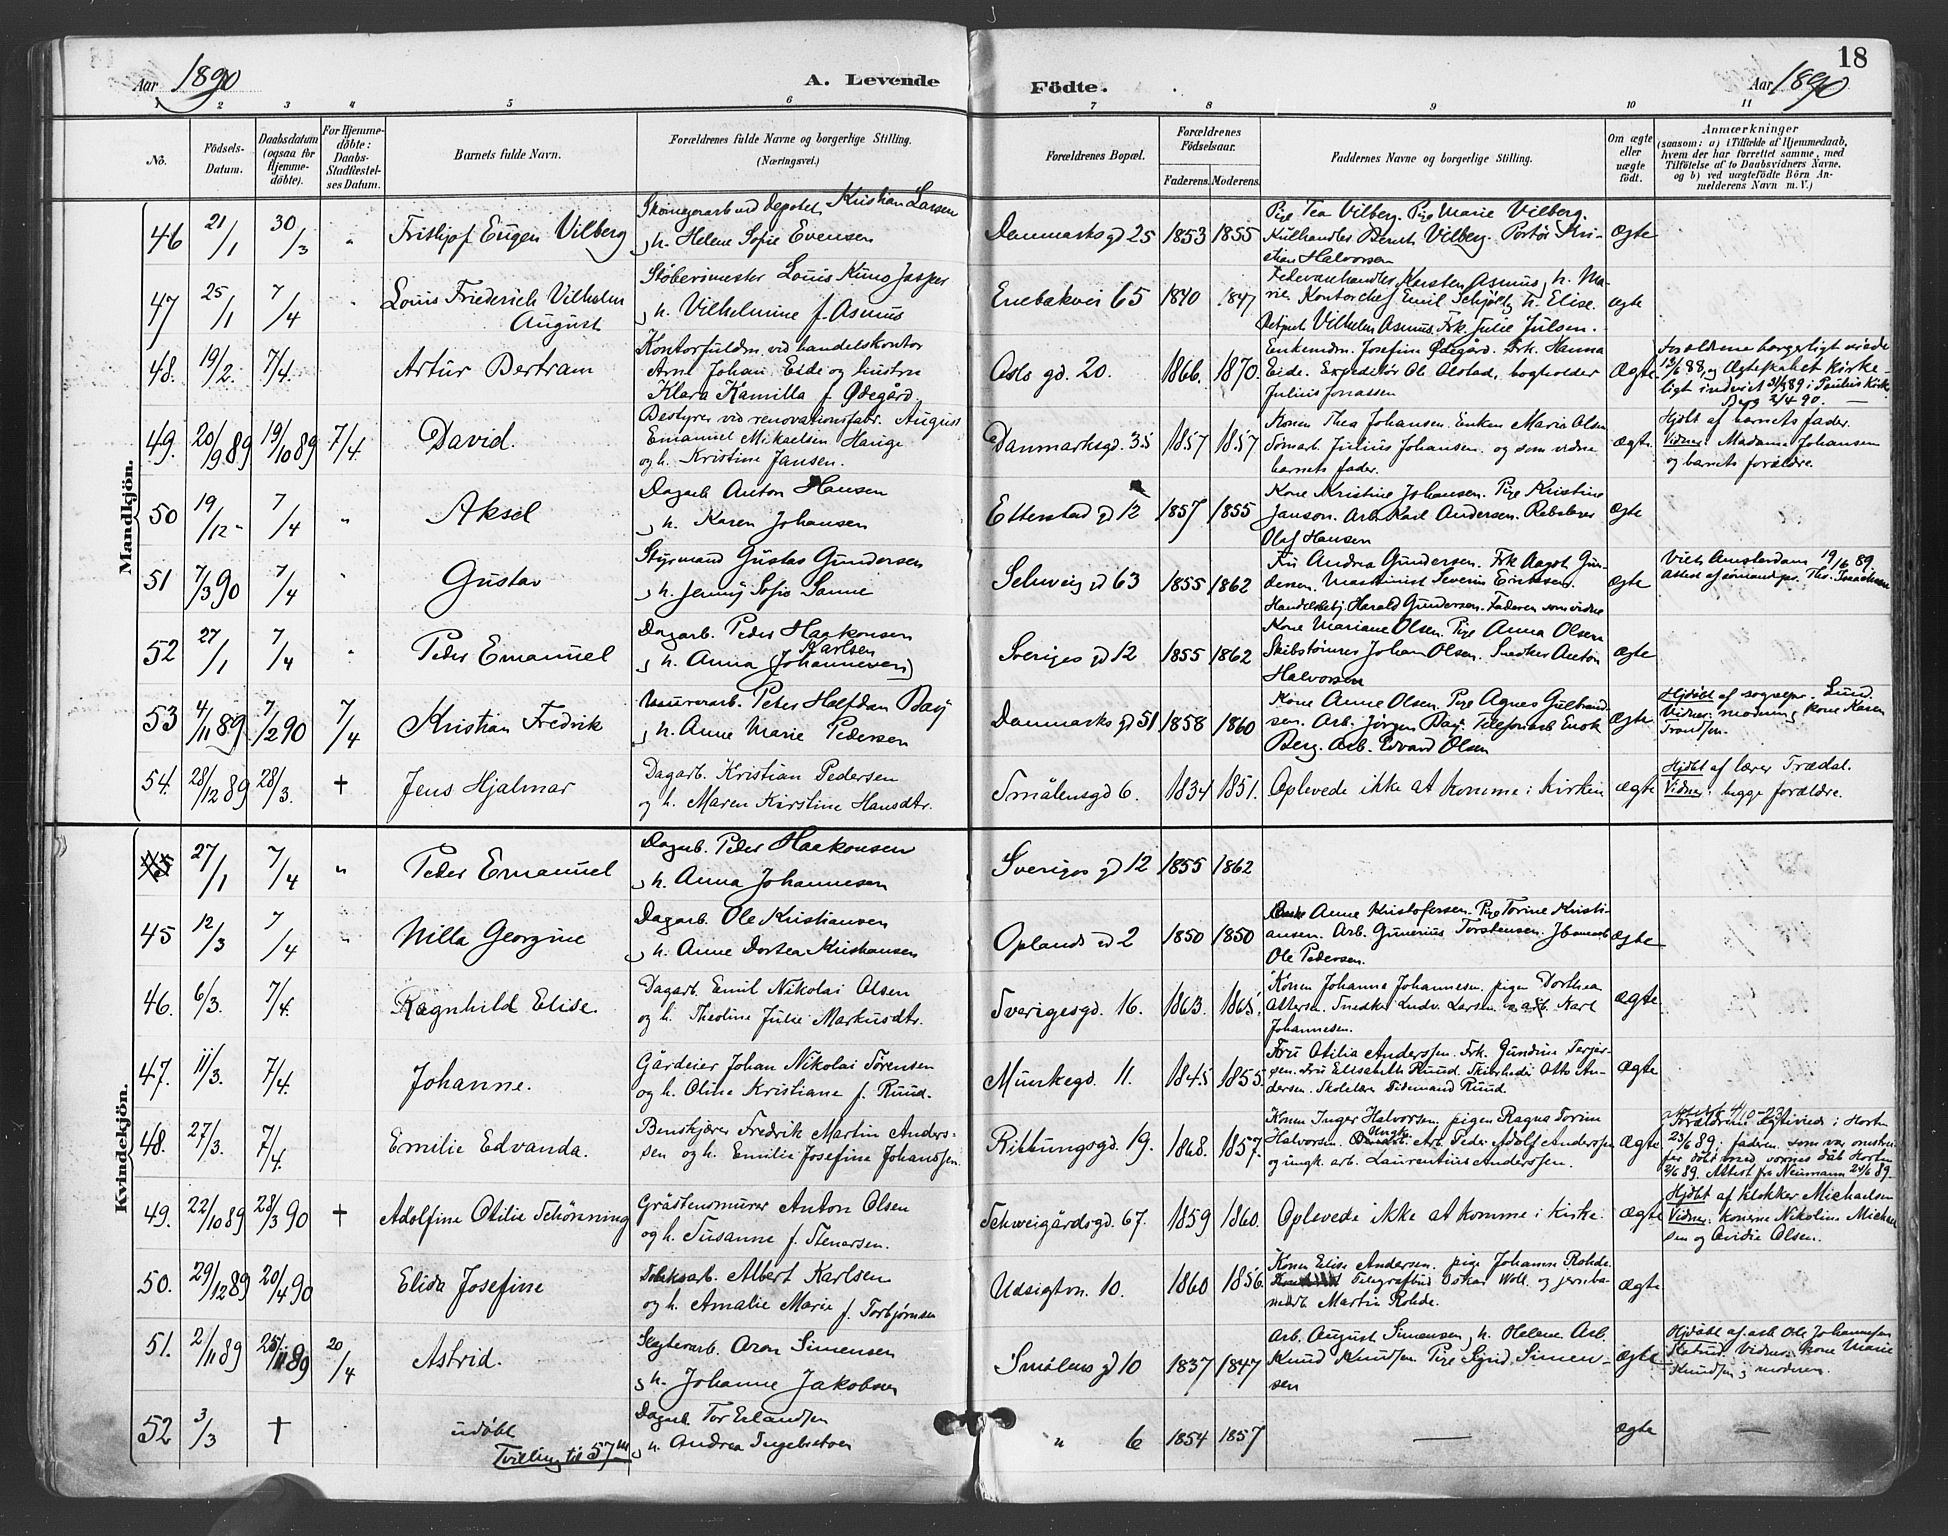 Aar 1890
A. Levende
Fødte.
Aar 1890
18
1 2 3 4 5 6 7 8 9 10 11
No.
Fødsels-Datum.
Daabsdatum (ogsaa for Hjemme-døbte).
For Hjemme-døbte: Daabs-Stadfæstel-ses Datum.
Barnets fulde Navn.
Forældrenes fulde Navne og borgerlige Stilling. (Næringsvei.)
Forældrenes Bopæl.
Forældrenes Fødselsaar.
Faderens. Moderens.
Faddernes Navne og borgerlige Stilling.
Om ægte eller uægte født.
Anmærkninger
(saasom: a) i Tilfælde af Hjemmedaab, hvem der har forrettet samme, med Tilføielse af to Daabsvidners Navne, og b) ved uægtefødte Børn An-melderens Navn m. V.)
Mandkjön.
46 21/1 30/3 " Frithjof Eugen Vilberg
Kristian Larsen
h. Helene Sofie Evensen
Danmarks gd 25 1853 1855
Pige Tea Vilberg. Pige Marie Vilberg.
Kulhandler Bernt Vilberg. Portør Kri-
stian Halvorsen
Ægte
47 25/1 7/4 " Louis Friederich Vilhelm
August
Støberimester Louis Kuno Jasper
h. Vilhelmine f. Asmus
Enebakvei 65 1840 1847
Fedevarehandler Karsten Asmus, h. Ma-
rie. Kontorchef Emil Schjøltz, h. Elise.
Vilhelm Asmus. Frk. Julie Julsen.
ægte
48. 19/2. 7/4. Artur Bertram
Kontorfuldm. ved handelskontor
Arne Johan Eide og hustru
Klara Kamilla f. Ødegård.
Oslo gd. 20. 1866. 1870.
Enkemdm. Josefine Ødegård. Frk. Hanna
Eide. Expeditør Ole Olstad, bogholder
Julius Jonassen
Ægte.
Forældrene borgerligt viede
13/6 88, og Ægteskabet kirke-
ligt indviet 31/3 89 i Paulus Kirke
Berg 2/4 90.
49. 20/9 89 19/10 89 7/4. David.
Bestyrer ved renovationsfabr. August
Emanuel Mikaelsen Hauge
og h. Kristine Jansen.
Danmarksgd. 35 1857 1857
Konen Thea Johansen. Enken Marie Olsen
Tømarb. Julius Johansen. og som vidne
barnets fader.
Ægte.
Hjdbt af barnets fader.
Vidner: Madame Johansen
og barnets forældre.
50 19/12 - 7/4 " Aksel
Dagarb Anton Hansen
h. Karen Johansen
Etterstad gd 12 1857 1855
Kone Kristine Johansen. Pige Kristine
Janson. Arb. Karl Andersen. Rebslager
Olaf Hansen
Ægte
51 7/3 90 7/4 " Gustav
Styrmand Gustav Gundersen
h. Jenny Sofie Sanne
Schweig gd 63 1855 1862
Fru Andrea Gundersen. Frk Aagot Gun-
dersen. Maskinist Severin Eriksen.
Handelsbetj. Harald Gundersen. Faderen som vidne
ægte
Viet i Amsterdam 19/6 89
Attest af sømandspr. Ths. Isaachsen
52 27/1 7/4 " Peder Emanuel
Dagarb. Peder Haakonsen
Karlsen
h. Anna (Johannesen)
Sveriges gd 12 1855 1862
Kone Mariane Olsen. Pige Anna Olsen
Skibstømrer Johan Olsen. Snedker Anton
Halvorsen
ægte
53 4/11 89. 7/2 90 7/4 Kristian Fredrik
Murerarb. Peter Halfdan Bay
h. Anne Marie Pedersen
Danmarks gd 51 1858 1860
Kone Anne Olsen. Pige Agnes Gulbrand-
sen. Arb. Jørgen Bay. Telefonarb Enok
Berg. Arb. Edvard Olsen
ægte
Hjdøbt af sognepr. Lund.
Vidner: moderen, kone Karen
Trandsen.
54. 28/12 89 28/3. † Jens Hjalmar
Dagarb. Kristian Pedersen
og h. Maren Kirstine Hansdtr.
Smålensgd 6. 1834 1851.
Oplevede ikke at komme i kirken
ægte
Hjdbt af lærer Trædal.
Vidner: begge forældre.
Kvindekjön.
27/1 7/4 " Peder Emanuel
Dagarb. Peder Haakonsen
h. Anna Johannesen
Sveriges gd 12 1855 1862
45 12/3 7/4 " Milla Georgine
Dagarb. Ole Kristiansen
h. Anne Dortea Kristiansen
Oplands gd 2 1850 1850
Anne Kristofersen. Pige Torine Kristi-
ansen. Arb. Gunerius Torstensen. Jbanearb
Ole Pedersen.
ægte
46. 6/3. 7/4. Ragnhild Elise.
Dagarb. Emil Nikolai Olsen
og h. Theoline Julie Markusdtr.
Sverigesgd. 16. 1863. 1865.
Konen Johanna Johannesen. pigen Dorthea
Ottersen. Snedker Ludv. Larsen. og arb. Karl
Johannesen.
ægte.
47. 11/3. 7/4. Johanne.
Gårdeier Johan Nikolai Sørensen
og h. Oline Kristiane f. Ruud.
Munkegd. 11. 1845 1855
Fru Otilia Anderssen. Frk. Gundine Terjer-
sen. Fru Elisabeth Ruud. Skibsreder Otto An-
dersen. Skolelær. Tidemand Ruud.
ægte
48. 27/3. 7/4. Emilie Edvanda.
Benskjærer Fredrik Martin Anders-
sen og h. Emilie Josefine Johanssen.
Ribbungsgd. 19. 1868. 1857.
Konen Inger Halvorsen. pigen Ragna Torine
Halvorsen. Ungk. Arb. Peder Adolf Anderssen
og ungk. arb. Laurentius Anderssen.
ægte.
attest 4/10-23
Forældrene ægteviede i Horten
23/6 89. Faderen, som var
døbt med voxnes dåb Horten
2/6 89. Attest fra Neumann 24/6 89.
49. 22/10 89 28/3 90 † Adolfine Otilie Schönning
Gråstensmurer Anton Olsen
og h. Susanne f. Stenersen.
Schweigårdsgd. 67. 1859 1860.
Oplevede ikke at komme i kirke.
ægte
Hjdbt af klokker Michaelsen
Vidner: konerne Nikoline Michael-
sen og Ovidie Olsen.
50. 29/12 89 20/4 90 Elida Josefine
Albert Karlsen
og h. Amalie Marie f. Torbjørnsen
Udsigtvn. 10. 1860 1856.
Konen Elise Andersen. pige Johanne Rohde.
Telegrafbud Oskar Woll. og jernba-
Martin Rohde.
ægte
51. 2/11 89 25/11 89 20/4 Astrid.
Aron Simensen
h. Johanne Jakobsen
Smålens gd 10 1837 1847
Arb. August Simensen, h. Helene Arb.
Knud Knudsen Pige Sigrid Simen-
sen
ægte
Hjdøbt af arb Ole Johannesen
Vidner: kone Marie
Knudsen, moderen.
52 3/3 † udøbt
Tvilling til 57
Dagarb. Tor Erlandsen
h. Andrea Ingebretsen
" 6 1854 1857
—
ægte
—